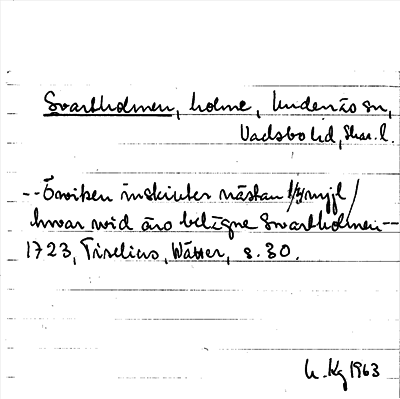 Svartholmen, holme, Undenäs sn,
Vadsbo hd, Skar. l.
-- Örviken inskiuter nästan 1/4 myjl /
hwar wid äro belägne Swartholmen --
1723, Tiselius, Wätter, s. 30.
1963